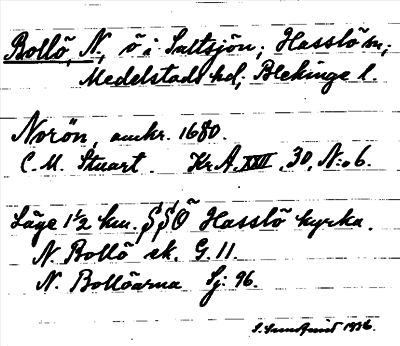 Bollö, N., ö i Saltsjön; Hasslö sn;
Medelstads hd; Blekinge l.
Norön, omkr. 1680.
C. M. Stuart. Kr A. XXII, 30, N:o 6.
Läge 1 1/2 km. SSÖ Hasslö kyrka.
N. Bollö ek. G. 11.
N. Bollöarna Sj: 96.
1936